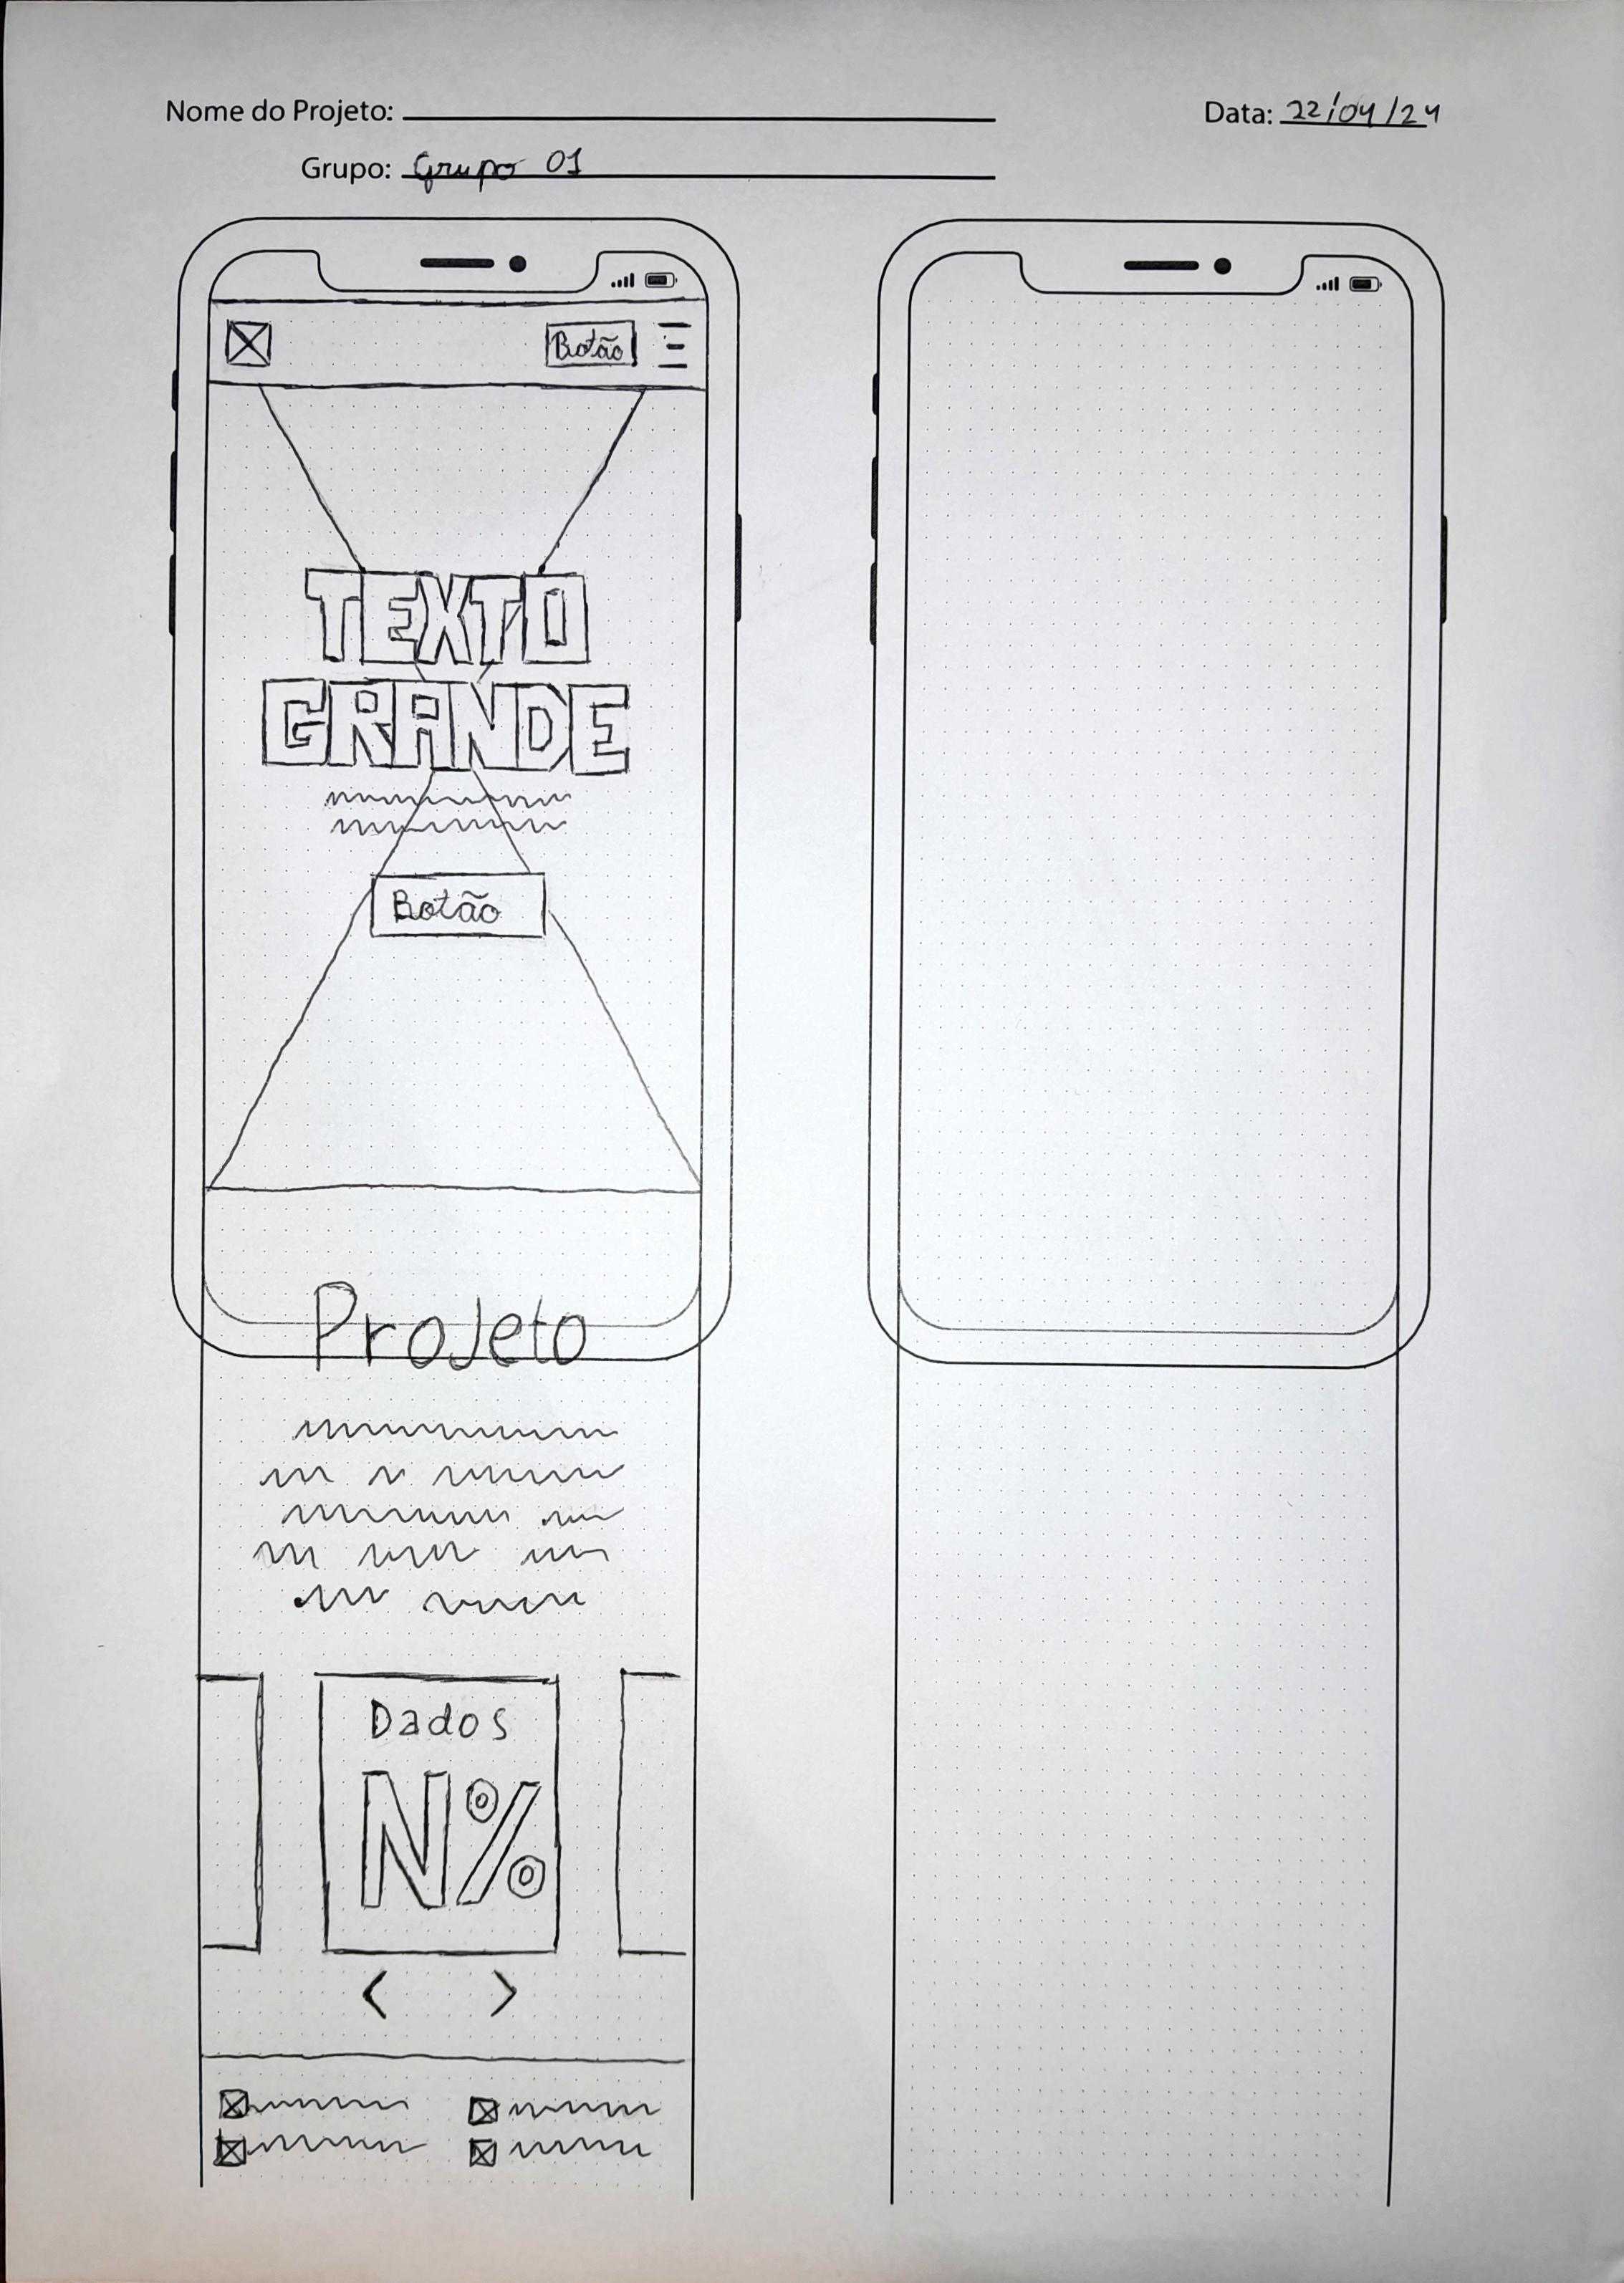 Nome do Projeto:
Data: 22/04/24
Grupo: Grupo 01
Botão
TEXTO
GRANDE
Botão
Projeto
Dados
N%